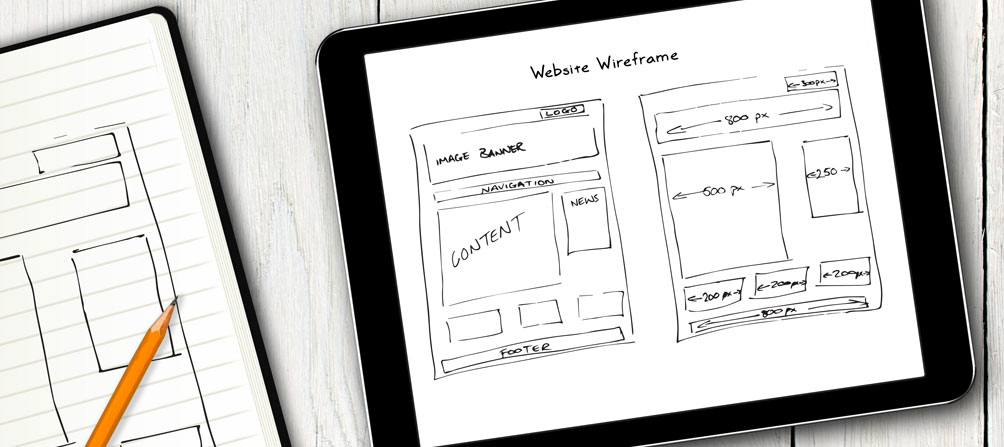 Website Wireframe
LOGO
IMAGE BANNER
NAVIGATION
CONTENT
NEWS
FOOTER
800 px
500 px
250
200 px
200px
200px
800 px